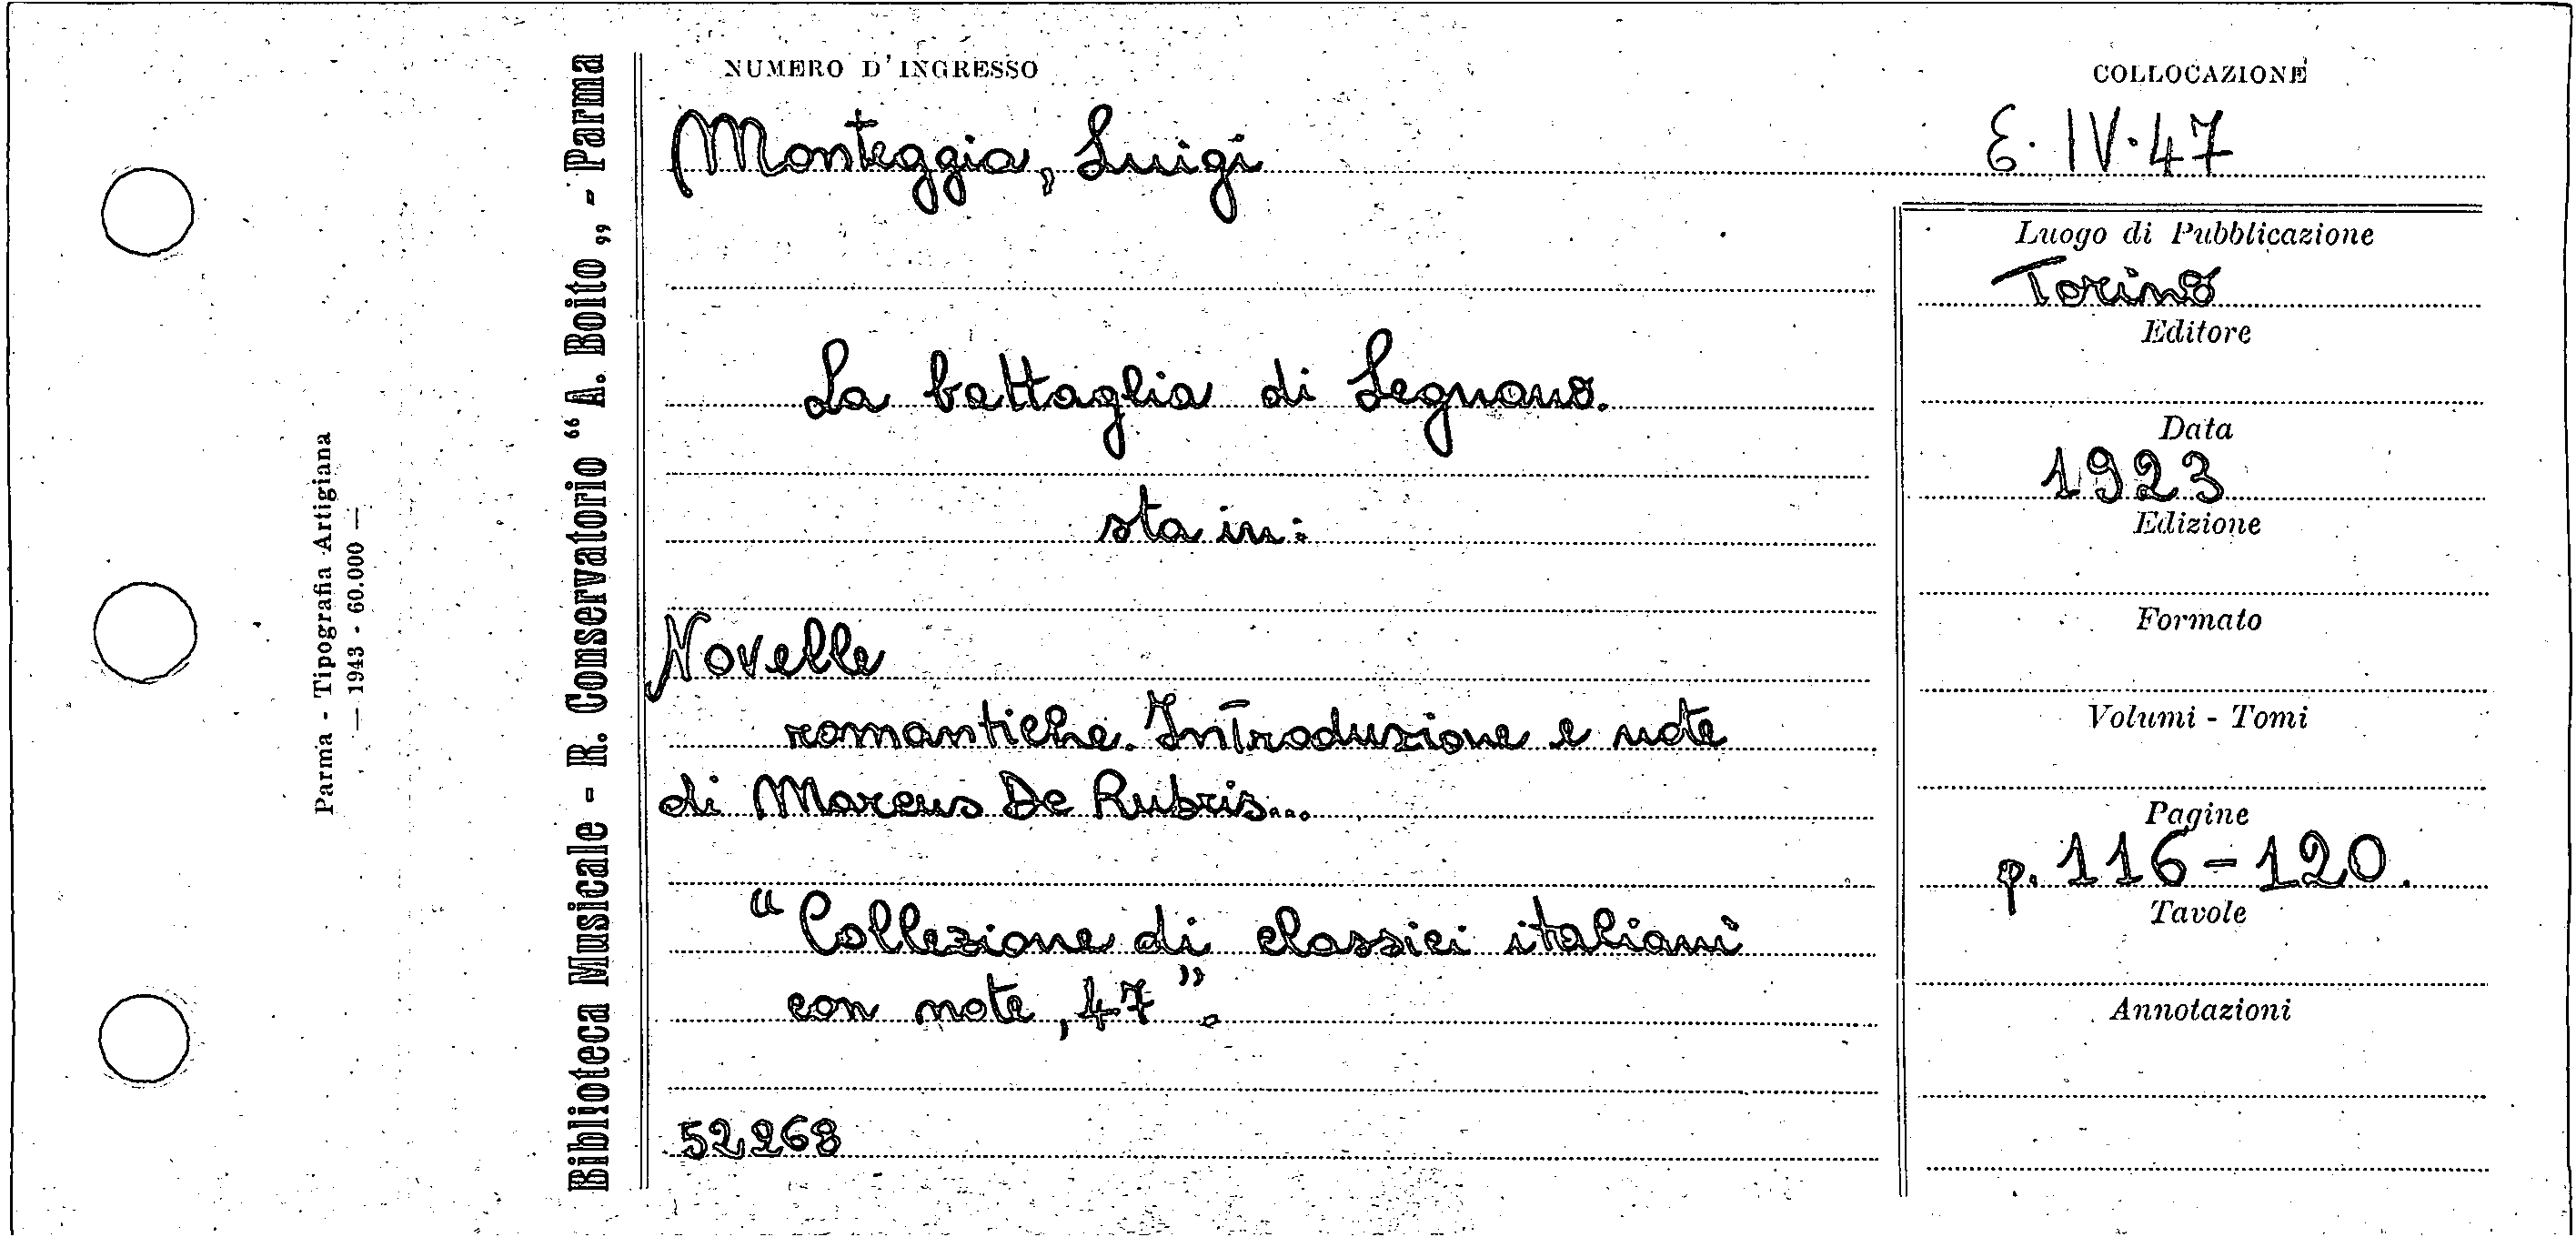 Parma - Tipografia Artigiana
— 1943 - 60.000 —
Biblioteca Musicale - R. Conservatorio “A. Boito„ - Parma
NUMERO D'INGRESSO
Monteggia, Luigi
La battaglia di Legnano.
sta in:
Novelle
romantiche. Introduzione e note
di Marcus De Rubris...
“Collezione di classici italiani
con note, 47”.
52268
COLLOCAZIONE
E. IV. 47
Luogo di Pubblicazione
Torino
Editore
Data
1923
Edizione
Formato
Volumi - Tomi
Pagine
p. 116-120.
Tavole
Annotazioni